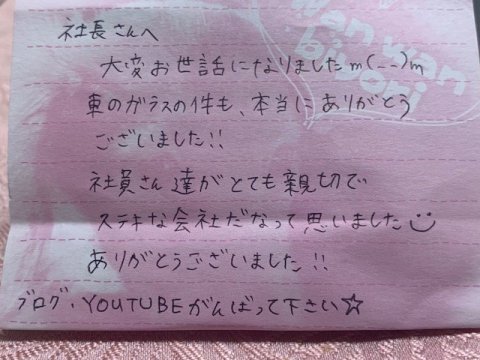 社長さんへ
大変お世話になりましたm(__)m
車のガラスの件も、本当にありがとう
ございました!!
社員さん達がとても親切で
ステキな会社だなって思いました
ありがとうございました!!
ブログ、YOUTUBEがんばって下さい☆